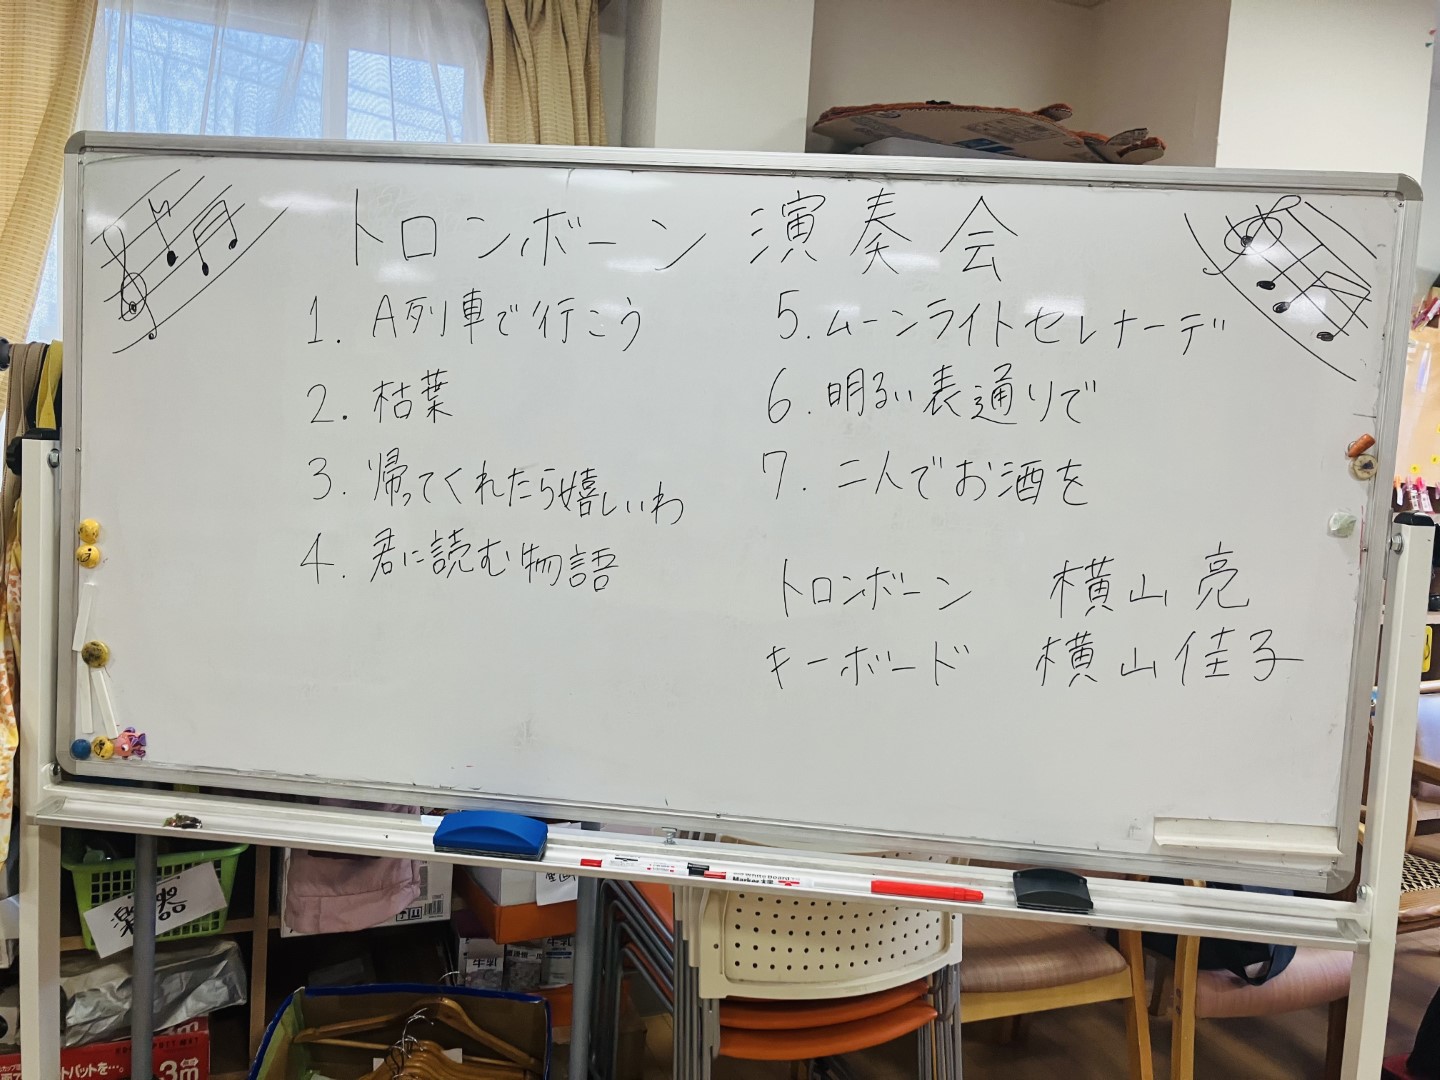 トロンボーン 演奏会
1. A列車で行こう
2. 枯葉
3. 帰ってくれたら嬉しいわ
4. 君に読む物語
5. ムーンライトセレナーデ
6. 明るい表通りで
7. 二人でお酒を
トロンボーン 横山 亮
キーボード 横山 佳子
楽器
牛乳
3m